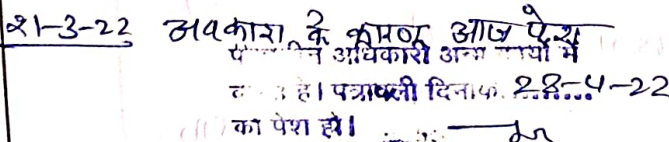 21-3-22 अवकाश के कारण आज पेश
अधिकारी अन्य कार्यों में
है। पत्रावली दिनांक 28-4-22
को पेश हो।